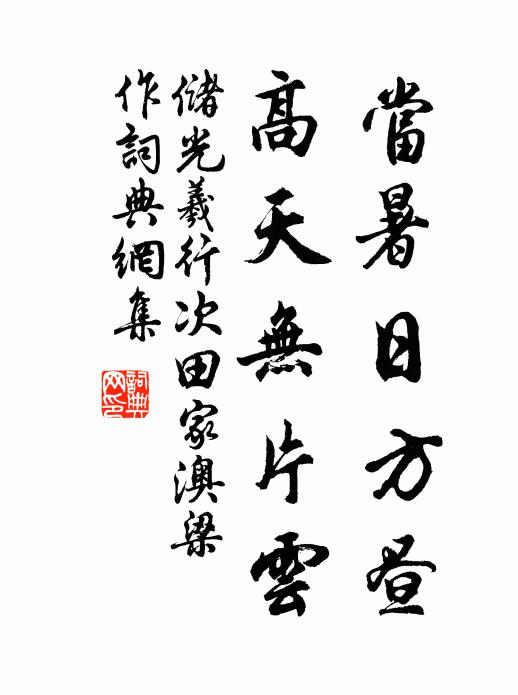 當暑日方晝
高天無片雲
儲光羲行次田家澳梁
作詞典網集
詞典
网印